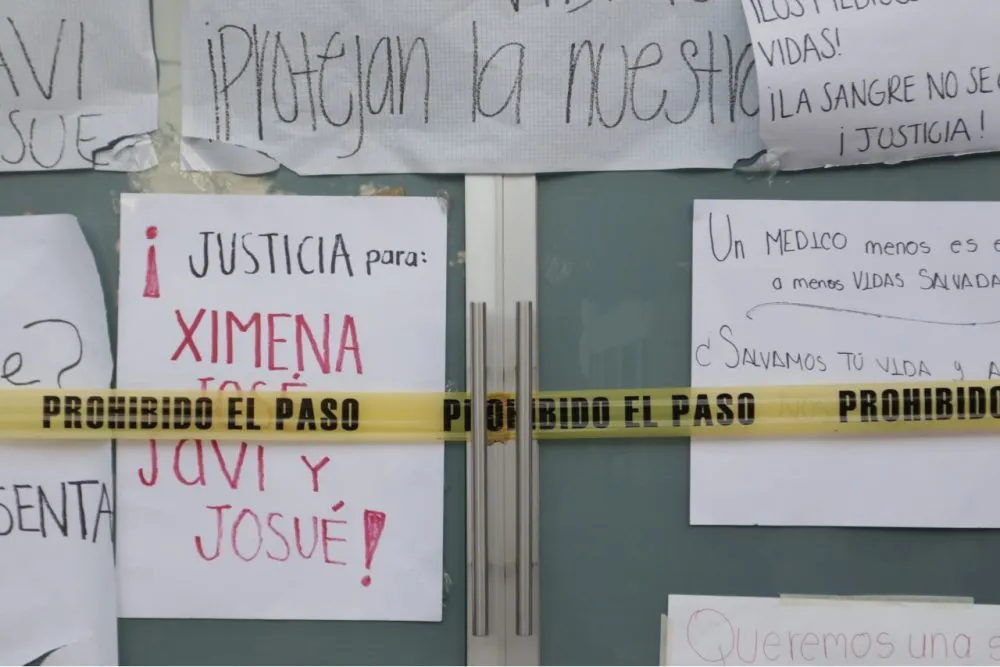 AVI
SUE
¡Protejan la nuestra
VIDAS!
¡LA SANGRE NO SE
¡JUSTICIA!
¡JUSTICIA para:
XIMENA
JOSÉ
JAVI Y
JOSUÉ!
Un MEDICO menos es
a menos VIDAS SALVADA
¿SALVAMOS TÚ VIDA y A
e?
SENTA
PROHIBIDO EL PASO PROHIBIDO EL PASO PROHIBIDO
Queremos una s